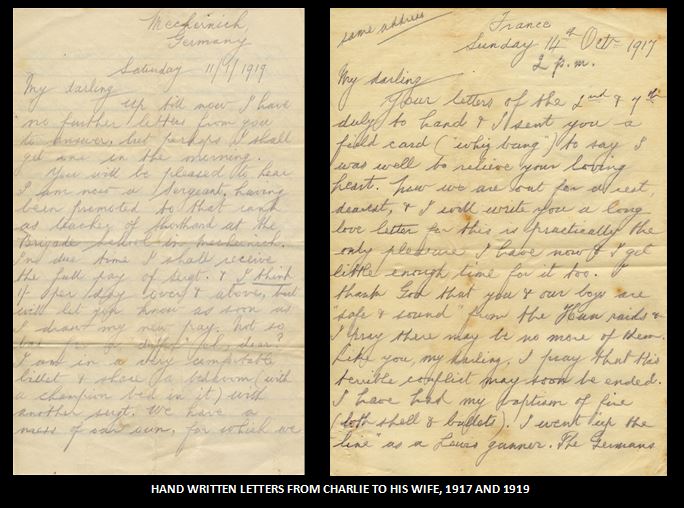 Mechernich
Germany
Saturday 11/1/1919
My darling
up till now I have
no further letters from you
to answer, but perhaps I shall
get one in the morning.
You will be pleased to hear
I am now a Sergeant, having
been promoted to that rank
as teacher of shorthand at the
Brigade School in Mechernich.
In due time I shall receive
the full pay of Sergt. & I think
per day over & above, but
will let you know as soon as
I draw my new pay. Not so
bad for a dear?
I am in a very comfortable
billet & share a bedroom (with
a champion bed in it) with
another sergt. We have a
mess of our own, for which we
same address
France
Sunday 14th Oct 1917
2 p.m.
My darling
Your letters of the 2nd & 7th
duly to hand & I sent you a
field card ("whiz bang") to say I
was well to relieve your loving
heart. Now we are out for a rest,
dearest, & I will write you a long
love letter for this is practically the
only pleasure I have now & I get
little enough time for it too. I
thank God that you & our boy are
"safe & sound" from the Hun raids &
I pray there may be no more of them.
Like you, my darling, I pray that this
terrible conflict may soon be ended.
I have had my baptism of fire
(both shell & bullets). I went "up the
line" as a Lewis gunner. The Germans
HAND WRITTEN LETTERS FROM CHARLIE TO HIS WIFE, 1917 AND 1919